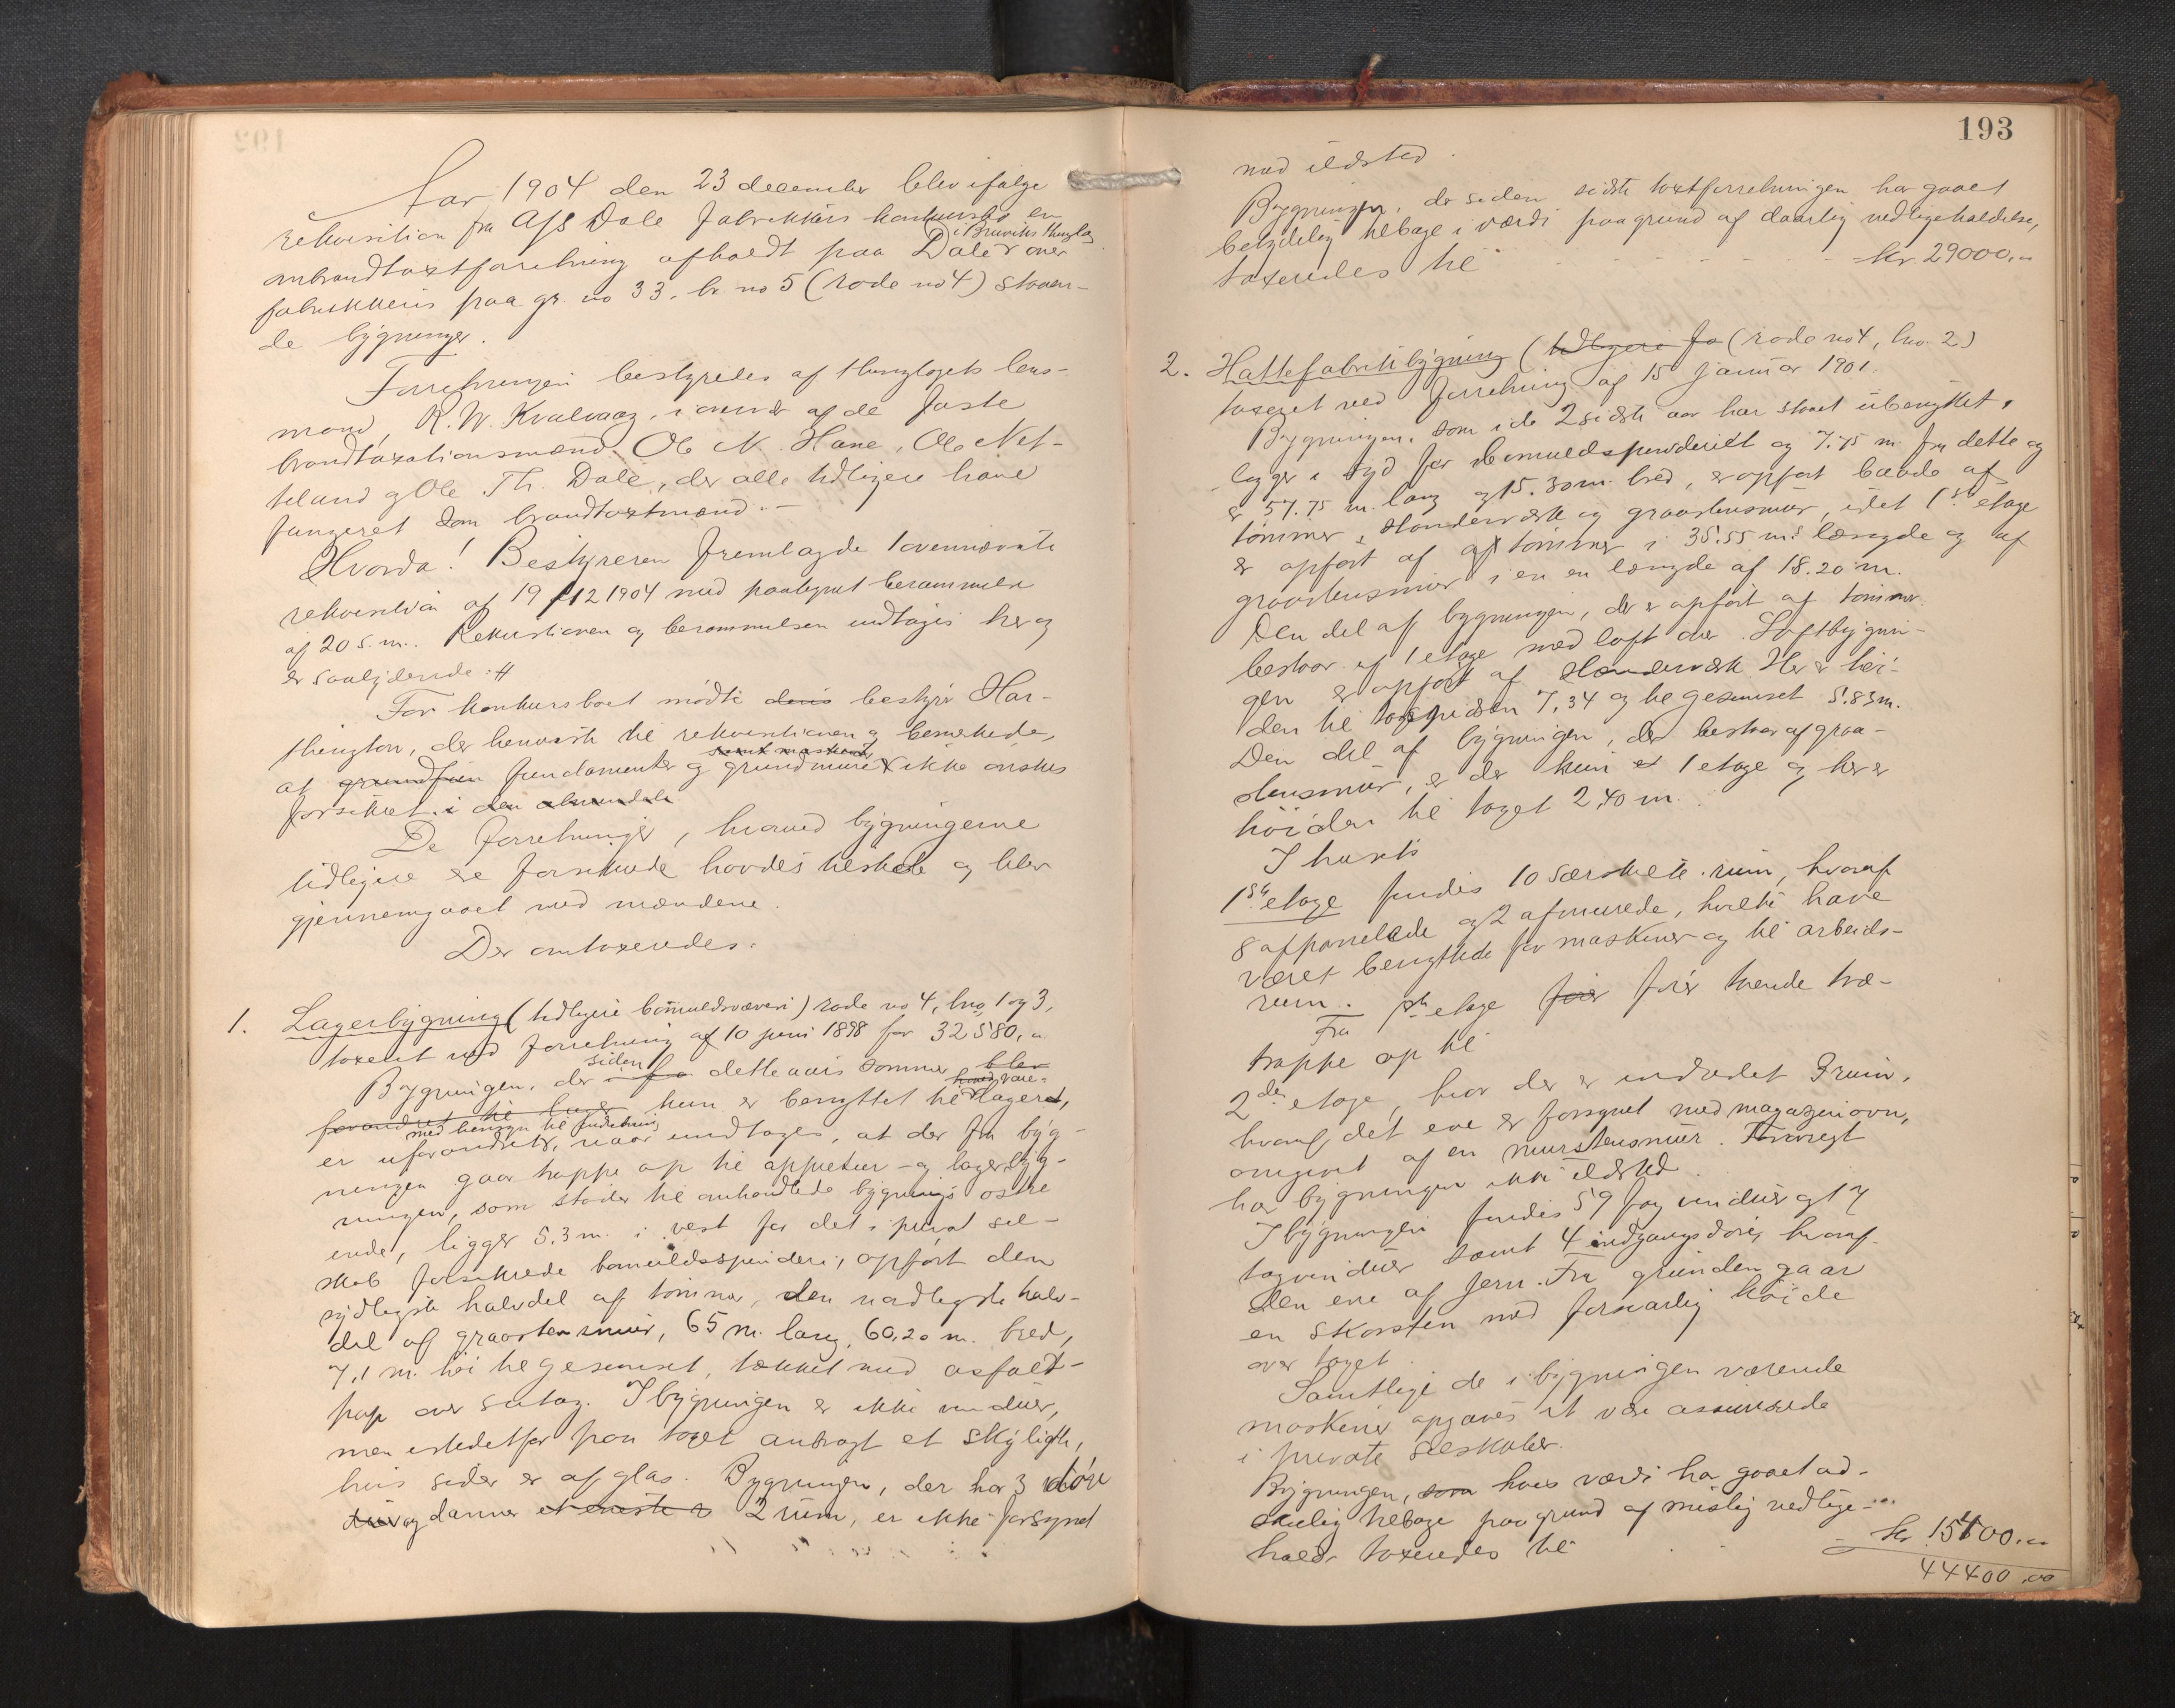 Aar 1904 den 23 december blev ifølge
rekvisition fra A/S Dale fabrikkers konkursbo en
i Bruviks thinglag
ombrandtaxtforretning afholdt paa Dale over
fabrikkens paa gr. no 33, br. no 5 (rode no 4) staaen-
de bygninger.
Forretningen bestyredes af thinglagets lens-
mand, R. W. Kvalvaag, i overvær af de faste
brandtaxationsmænd Ole N. Hane, Ole Net-
teland og Ole Th. Dale, der alle tidligere have
fungeret som brandtaxtmænd.-
Hvorda! Bestyreren fremlagde ovennævnte
rekvisition af 19/12 1904 med paategnet berammelse
af 20 s. m. Rekvisitionen og berammelsen indtages her og
er saalydende: #
For konkursboet mødte dens bestyrer Har-
thington, der henviste til rekvisitionen og bemerkede,
samt maskiner
at grundfun fundamenter og grundmure ikke ønskes
forsikret i den
De forretninger, hvorved bygningerne
tidligere ere forsikrede havdes tilstede og blev
gjennemgaaet med mændene.
Der omtaxeredes:
1. Lagerbygning (tidligere bomuldsvæveri) rode no 4, lno 1 og 3,
taxeret ved forretning af 10 juni 1898 for 32 580,00
siden
Bygningen, der fra dette aars sommer blev
forandret til lager kun er benyttet til lager,
med hensyn til indretning
er uforandret, naar undtages, at der fra byg-
ningen gaar trappe op til appretur- og lagerbyg-
ningen, som støder til omhandlede bygnings østre
ende, ligger 5.3 m. i vest for det i privat sel-
skab forsikrede bomuldsspinderi, opført den
sydligste halvdel af tømmer, den nordligste halv-
del af graastensmur, 65 m. lang, 60,20 m. bred,
7,1 m. høi til gesimset, tækket med asfalt-
pap over sutag. I bygningen er ikke vinduer,
men istedetfor paa taget anbragt et skyligth,
hvis sider er af glas. Bygningen, der har 3 døre
og danner et eneste r 2 rum, er ikke forsynet
193
med ildsted.
Bygningen, der siden sidste taxtforretningen har gaaet
betydelig tilbage i værdi paa grund af daarlig vedligeholdelse,
taxeredes til - - - - - kr. 29000,00
2. Hattefabrikbygning (tidligere fa (rode no 4, lno. 2)
taxeret ved forretning af 15 januar 1901.
Bygningen, som i de 2 sidste aar har staaet ubenyttet,
ligger i syd for bomuldsspinderiet og 7.75 m. fra dette og
er 57.75 m. lang og 15.30 m. bred, er opført baade af
tømmer, standerværk og graastensmur, idet 1ste etage
er opført af af tømmer i 35.55 m.s længde og af
graastensmur i en en længde af 18.20 m.
Den del af bygningen, der er opført af tømmer
bestaar af 1 etage med loft over. Loftbygnin-
gen er opført af standerværk. Her er høi-
den til tagspidsen 7,34 og til gesimset 5.83 m.
Den del af bygningen, der bestaar af graa-
stensmur, er der kun et 1 etage og her er
høiden til taget 2,40 m.
I husets
1ste etage findes 10 særskilte rum, hvoraf
8 afpanelede og 2 afmurede, hvilke have
været benyttede for maskiner og til arbeids-
rum.
Fra 1ste etage fører fører tvende træ-
trappe op til
2den etage, hvor der er indredet 9 rum,
hvoraf det ene er forsynet med magazinovn,
omgivet af en murstensmur. Forøvrigt
har bygningen ikke ildsted.
I bygningen findes 59 fag vinduer og 17
tagvinduer samt 4 indgangsdøre, hvoraf
den ene af jern. Fra grunden gaar
en skorsten med forsvarlig høide
over taget.
Samtlige de i bygningen værende
maskiner opgaves at være assurerede
i private selskaber.
Bygningen, som hvis værdi har gaaet ad-
skillig tilbage paa grund af mislig vedlige-
hold taxeredes til - - kr. 15400,00
44400,00